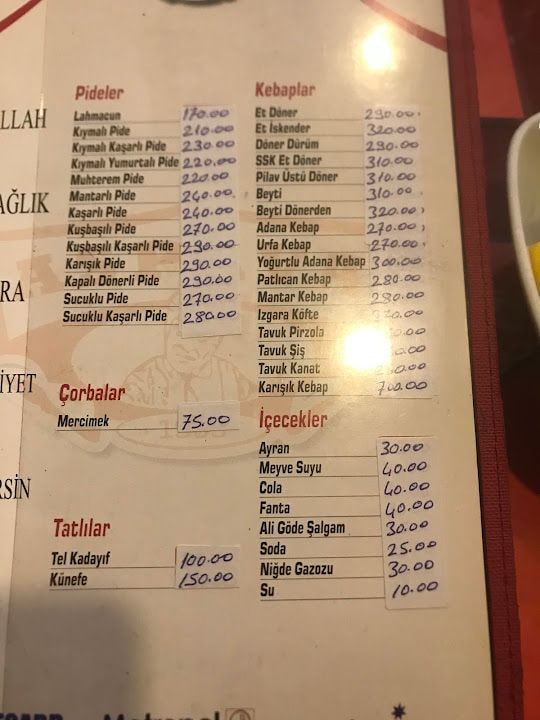 LLAH
AĞLIK
RA
İYET
RSİN
Pideler
Lahmacun 170.00
Kıymalı Pide 210.00
Kıymalı Kaşarlı Pide 230.00
Kıymalı Yumurtalı Pide 220.00
Muhterem Pide 220.00
Mantarlı Pide 240.00
Kaşarlı Pide 240.00
Kuşbaşılı Pide 270.00
Kuşbaşılı Kaşarlı Pide 290.00
Karışık Pide 290.00
Kapalı Dönerli Pide 290.00
Sucuklu Pide 270.00
Sucuklu Kaşarlı Pide 280.00
Çorbalar
Mercimek 75.00
Tatlılar
Tel Kadayıf 100.00
Künefe 150.00
Kebaplar
Et Döner 290.00
Et İskender 320.00
Döner Dürüm 290.00
SSK Et Döner 310.00
Pilav Üstü Döner 310.00
Beyti 310.00
Beyti Dönerden 320.00
Adana Kebap 270.00
Urfa Kebap 270.00
Yoğurtlu Adana Kebap 300.00
Patlıcan Kebap 280.00
Mantar Kebap 290.00
Izgara Köfte
Tavuk Pirzola
Tavuk Şiş
Tavuk Kanat
Karışık Kebap 700.00
İçecekler
Ayran 30.00
Meyve Suyu 40.00
Cola 40.00
Fanta 40.00
Ali Göde Şalgam 30.00
Soda 25.00
Niğde Gazozu 30.00
Su 10.00